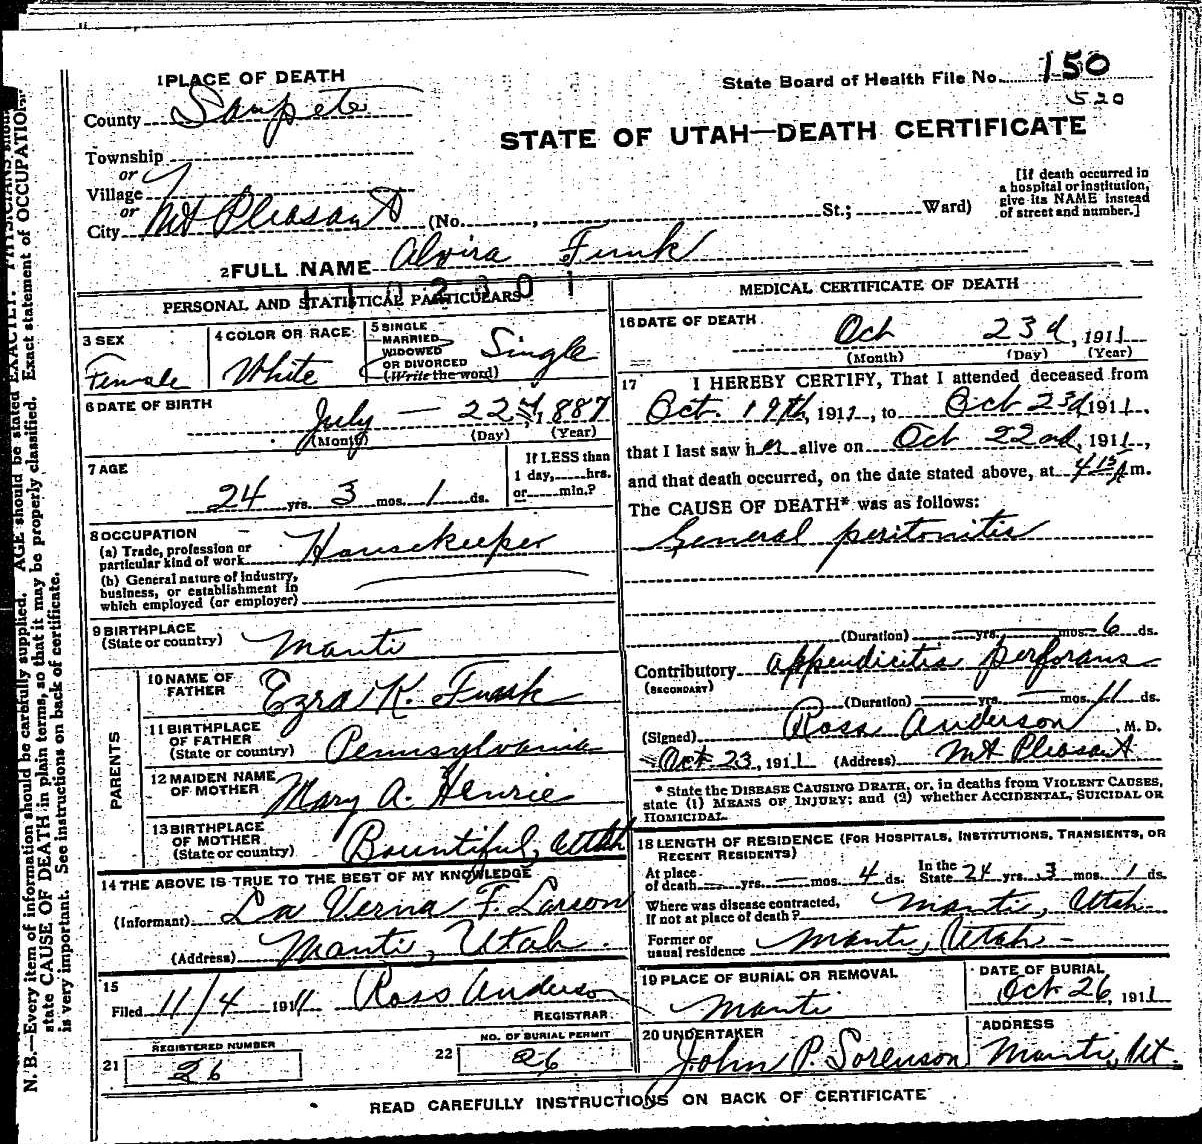 1 PLACE OF DEATH
State Board of Health File No. 150
520
County Sanpete
STATE OF UTAH—DEATH CERTIFICATE
Township
or
Village
or
City Mt Pleasant (No. , St.; Ward)
[If death occurred in
a hospital or institution,
give its NAME instead
of street and number.]
2 FULL NAME Alvira Funk
1102301
PERSONAL AND STATISTICAL PARTICULARS
3 SEX
Female
4 COLOR OR RACE
White
5 SINGLE
MARRIED
WIDOWED
OR DIVORCED
(Write the word)
Single
6 DATE OF BIRTH
July — 22d, 1887
(Month) (Day) (Year)
7 AGE
24 yrs. 3 mos. 1 ds.
If LESS than
1 day, hrs.
or min.?
8 OCCUPATION
(a) Trade, profession or
particular kind of work Housekeeper
(b) General nature of industry,
business, or establishment in
which employed (or employer)
9 BIRTHPLACE
(State or country) Manti
PARENTS
10 NAME OF
FATHER Ezra K. Funk
11 BIRTHPLACE
OF FATHER
(State or country) Pennsylvania
12 MAIDEN NAME
OF MOTHER Mary A. Henrie
13 BIRTHPLACE
OF MOTHER
(State or country) Bountiful, Utah
14 THE ABOVE IS TRUE TO THE BEST OF MY KNOWLEDGE
(Informant) La Verna F. Larson
(Address) Manti, Utah.
15
Filed 11/4 1911 Ross Anderson
REGISTRAR
21 REGISTERED NUMBER
26
22 NO. OF BURIAL PERMIT
26
MEDICAL CERTIFICATE OF DEATH
16 DATE OF DEATH
Oct 23d, 1911
(Month) (Day) (Year)
17 I HEREBY CERTIFY, That I attended deceased from
Oct. 19th, 1911, to Oct 23d 1911,
that I last saw her alive on Oct 22nd, 1911,
and that death occurred, on the date stated above, at 4 15 A m.
The CAUSE OF DEATH* was as follows:
General peritonitis
(Duration) — yrs. — mos. 6 ds.
Contributory appendicitis perforans
(SECONDARY)
(Duration) — yrs. — mos. 11 ds.
(Signed) Ross Anderson, M. D.
Oct. 23, 1911 (Address) Mt Pleasant
* State the DISEASE CAUSING DEATH, or, in deaths from VIOLENT CAUSES,
state (1) MEANS OF INJURY; and (2) whether ACCIDENTAL, SUICIDAL OR
HOMICIDAL.
18 LENGTH OF RESIDENCE (FOR HOSPITALS, INSTITUTIONS, TRANSIENTS, OR
RECENT RESIDENTS)
At place
of death — yrs. — mos. 4 ds.
In the
State 24 yrs. 3 mos. 1 ds.
Where was disease contracted,
If not at place of death? Manti, Utah
Former or
usual residence Manti, Utah
19 PLACE OF BURIAL OR REMOVAL
Manti
DATE OF BURIAL
Oct. 26, 1911
20 UNDERTAKER
John P. Sorenson
ADDRESS
Manti, Ut.
READ CAREFULLY INSTRUCTIONS ON BACK OF CERTIFICATE
N. B.—Every item of information should be carefully supplied. AGE should be stated EXACTLY. PHYSICIANS should
state CAUSE OF DEATH in plain terms, so that it may be properly classified. Exact statement of OCCUPATION
is very important. See instructions on back of certificate.